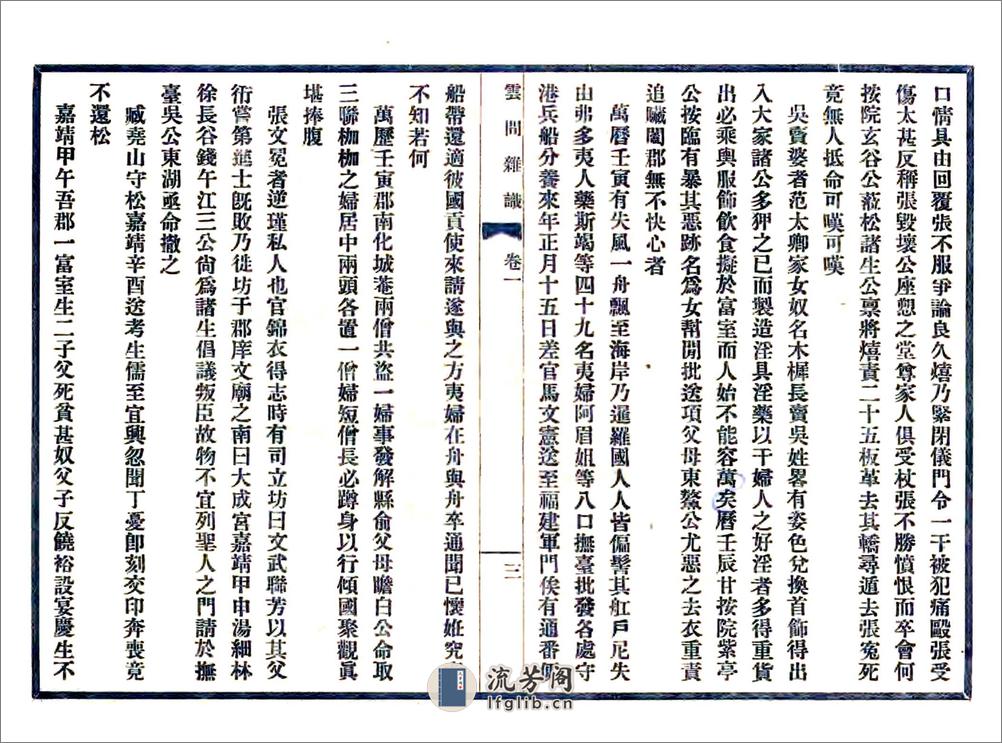 口情具由回覆張不服爭論良久熺乃緊閉儀門令一干被犯痛毆張受
傷太甚反稱張毀壞公座恕之堂尊家人俱受杖張不勝憤恨而卒會何
按院玄谷公蒞松諸生公禀將熺責二十五板革去其轎尋遁去張寃死
竟無人抵命可嘆可嘆
吳賣婆者范太卿家女奴名木樨長賣吳姓畧有姿色兌換首飾得出
入大家諸公多狎之已而製造淫具淫藥以干婦人之好淫者多得重貨
出必乘輿服飾飲食擬於富室而人始不能容萬矣曆壬辰甘按院紫亭
公按臨有暴其惡跡名爲女幫閒批送項父母東鰲公尤惡之去衣重責
追贓闔郡無不快心者
萬曆壬寅有失風一舟飄至海岸乃暹羅國人人皆偏髻其舡戶尼失
山弗多夷人藥斯竭等四十九名夷婦阿眉妲等八口撫臺批發各處守
港兵船分養來年正月十五日差官馬文憲送至福建軍門俟有通番
雲間雜識 卷一 三
船帶還適彼國貢使來請遂與之方夷婦在舟與舟卒通聞已懷姙究
不知若何
萬歷壬寅郡南化城菴兩僧共盜一婦事發解縣俞父母瞻白公命取
三聯枷枷之婦居中兩頭各置一僧婦短僧長必蹲身以行傾國聚觀眞
堪捧腹
張文冕者逆瑾私人也官錦衣得志時有司立坊曰文武聯芳以其父
衕嘗第進士旣敗乃徙坊于郡庠文廟之南曰大成宮嘉靖甲申湯細林
徐長谷錢午江三公尙爲諸生倡議叛臣故物不宜列聖人之門請於撫
臺吳公東湖亟命撤之
臧堯山守松嘉靖辛酉送考生儒至宜興忽聞丁憂卽刻交印奔喪竟
不還松
嘉靖甲午吾郡一富室生二子父死貧甚奴父子反饒裕設宴慶生不
流芳阁
lfglib.cn